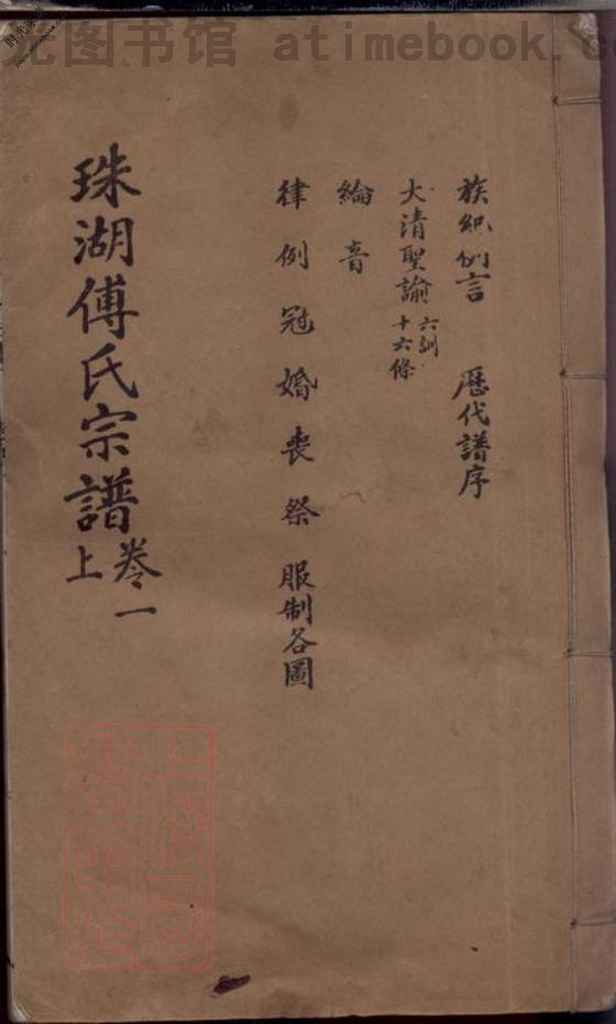 光图书馆 atimebook.c
族纪例言 歷代譜序
大清聖諭 六訓 十六條
綸音
律例冠婚喪祭服制各圖
珠湖傅氏宗譜 卷一上